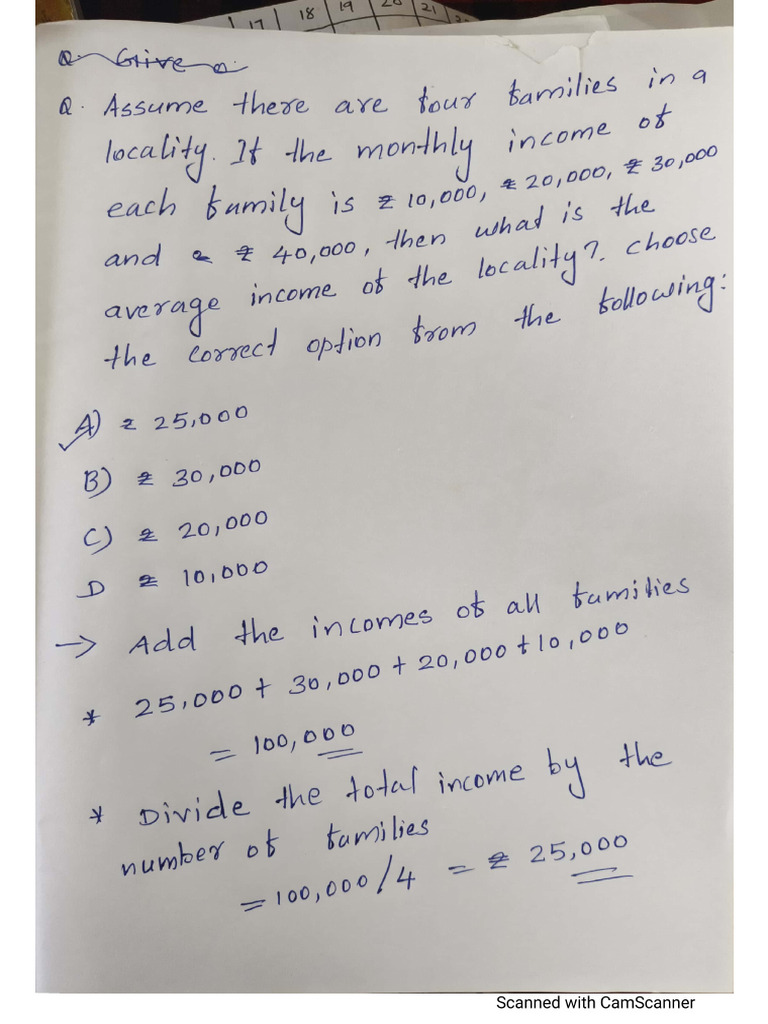 17 18 19 20 21
Q. Give a.
Q. Assume there are four families in a
locality. If the monthly income of
each family is ₹ 10,000, ₹ 20,000, ₹ 30,000
and ₹ 40,000, then what is the
average income of the locality?. Choose
the correct option from the following:
A) ₹ 25,000
B) ₹ 30,000
C) ₹ 20,000
D ₹ 10,000
→ Add the incomes of all families
* 25,000 + 30,000 + 20,000 + 10,000
= 100,000
* Divide the total income by the
number of families
= 100,000/4 = ₹ 25,000
Scanned with CamScanner